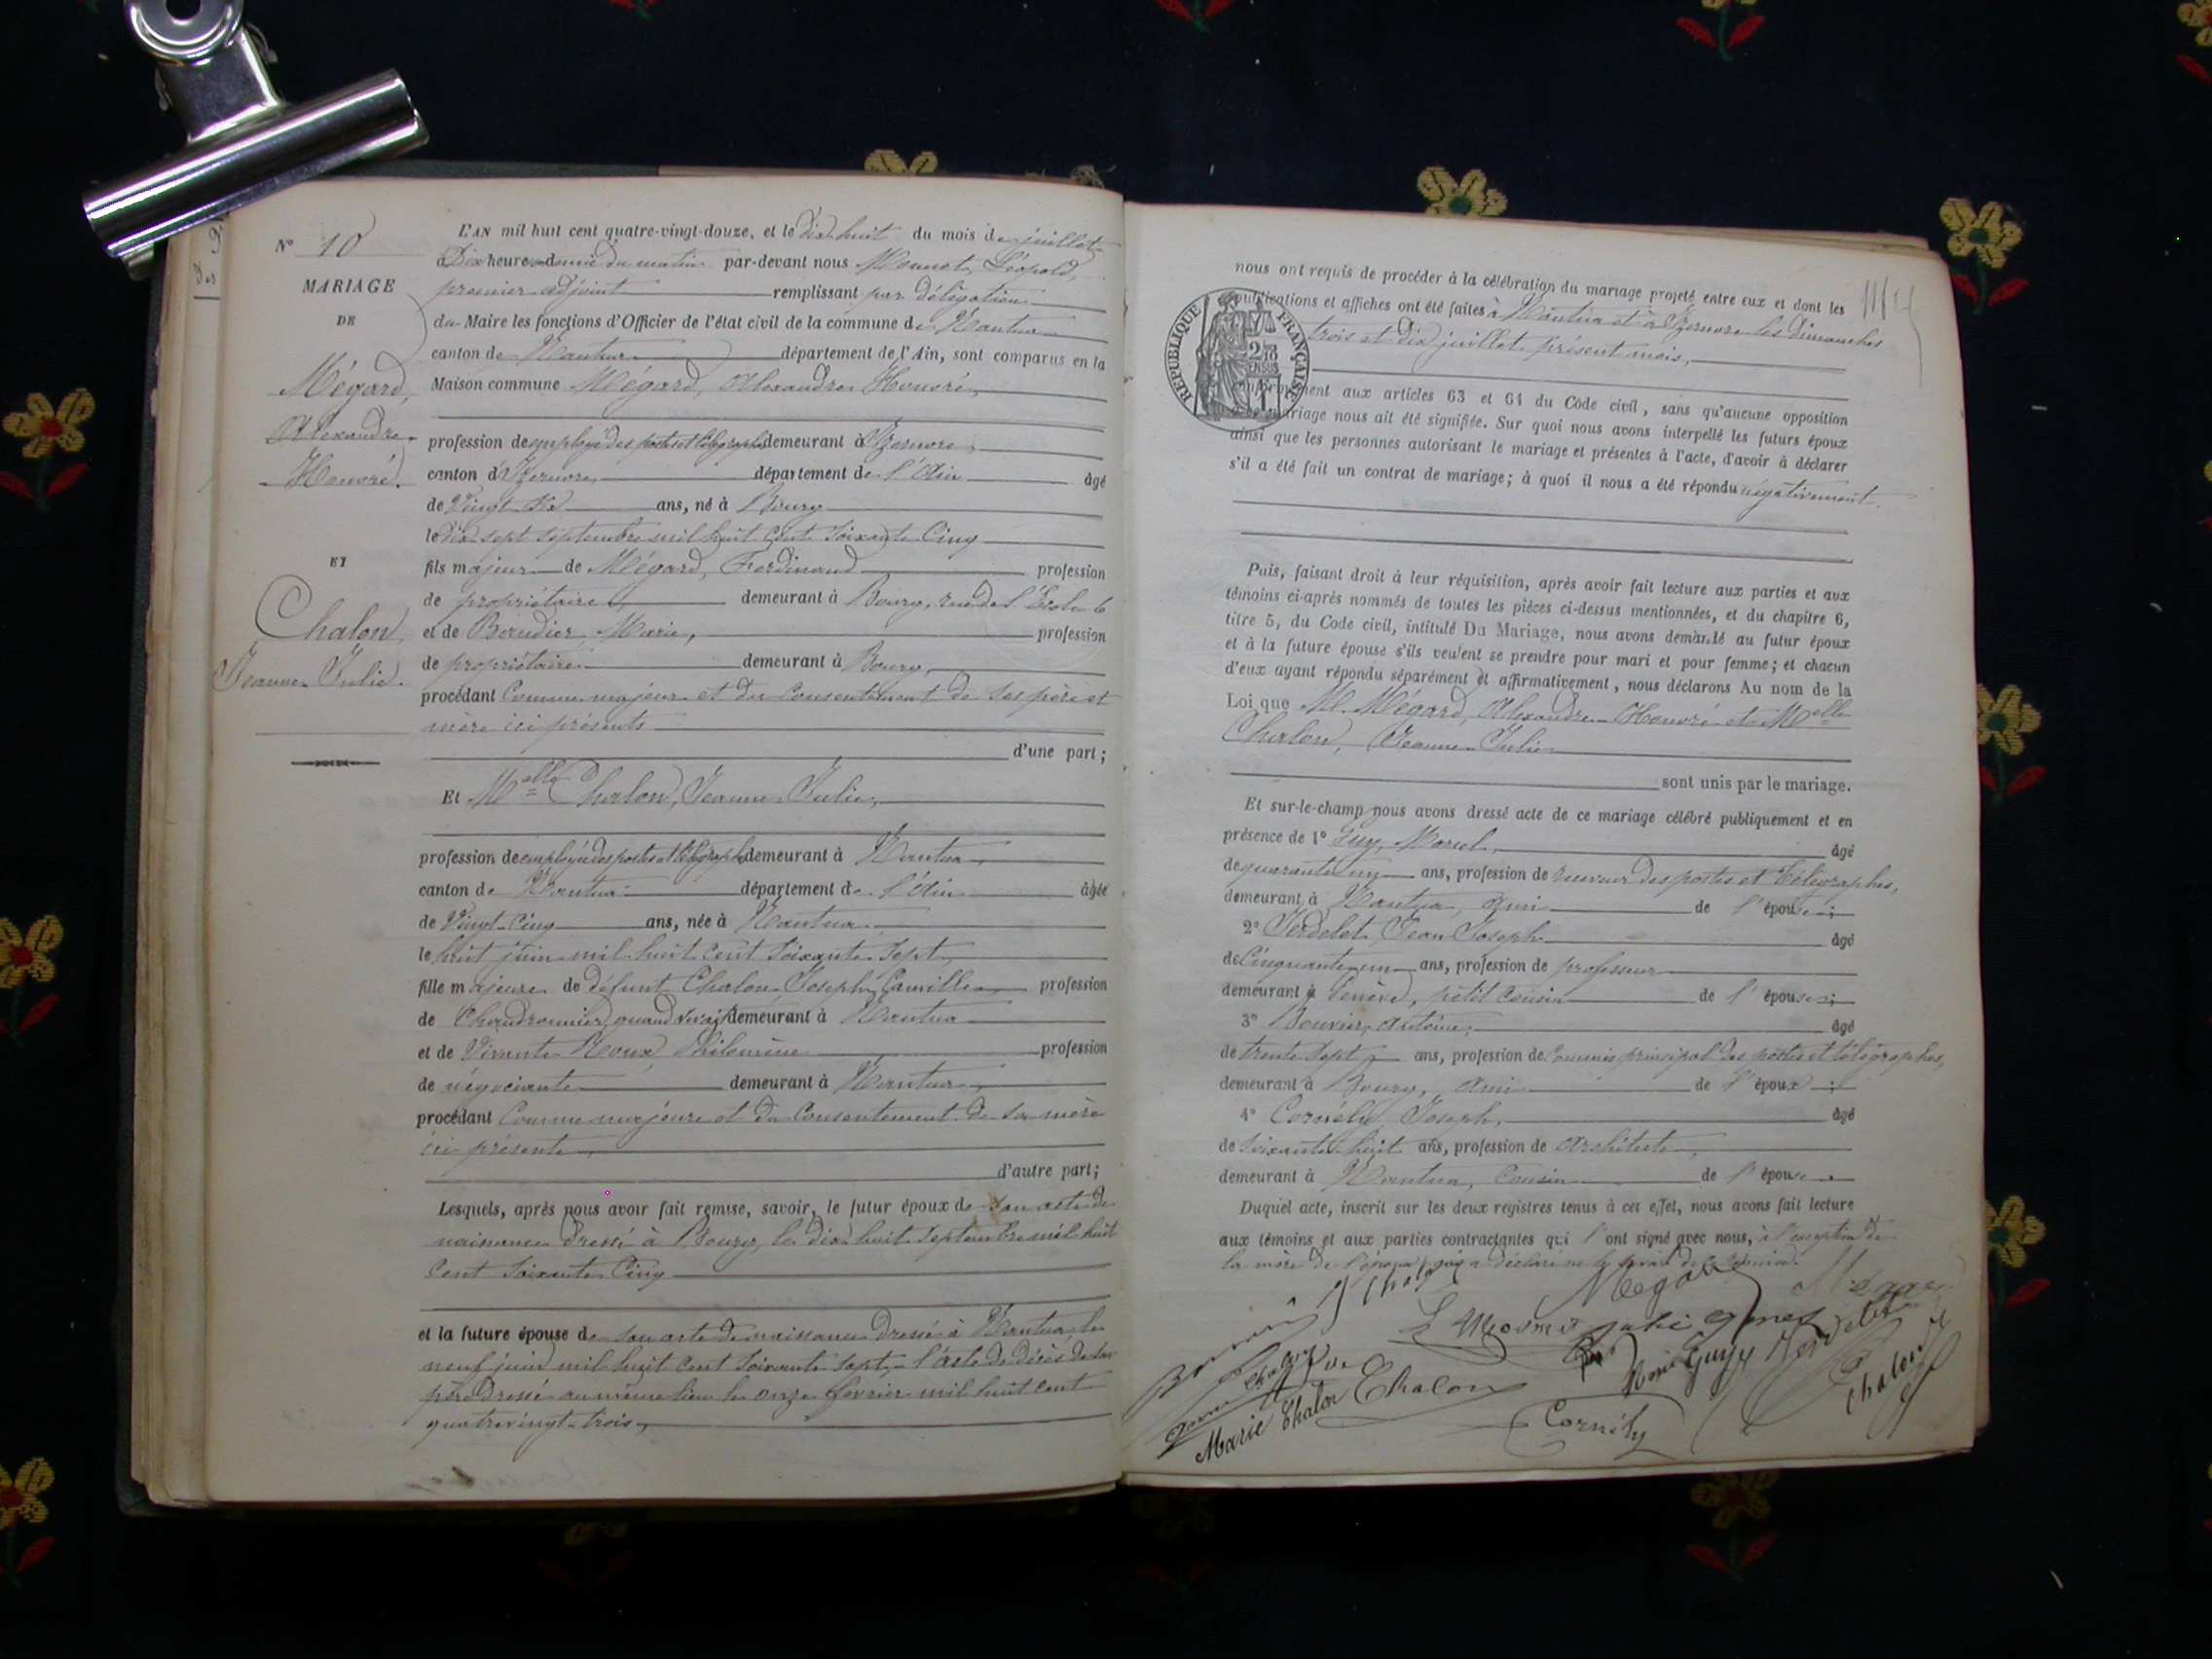 N° 10
MARIAGE
DE
Mégard,
Alexandre
Honoré.
ET
Chalon,
Jeanne Julie.
L'AN mil huit cent quatre-vingt-douze, et le dix huit du mois de juillet
à Dix heures demie du matin par-devant nous Léopold,
premier adjoint remplissant par délégation
du Maire les fonctions d'Officier de l'état civil de la commune de Nantua
canton de Nantua département de l'Ain, sont comparus en la
Maison commune Mégard, Alexandre Honoré,
profession de employé des postes et télégraphes demeurant à Izernore,
canton d'Izernore, département de l'Ain âgé
de Vingt six ans, né à Bourg
le Dix sept septembre mil huit cent soixante cinq
fils majeur de Mégard, Ferdinand profession
de propriétaire, demeurant à Bourg, rue de l'Ecole 6
et de Marie, profession
de propriétaire demeurant à Bourg,
procédant comme majeur et du consentement de ses père et
mère ici présents
d'une part ;
Et Melle Chalon, Jeanne Julie,
profession de employée des postes et télégraphes demeurant à Nantua,
canton de Nantua département de l'Ain âgée
de Vingt cinq ans, née à Nantua
le huit juin mil huit cent soixante sept,
fille majeure de défunt Chalon Joseph Camille, profession
de Chaudronnier, quand vivait demeurant à Nantua
et de Vivante Roux Philomène profession
de négociante demeurant à Nantua,
procédant comme majeure et du consentement de sa mère
ici présente,
d'autre part ;
Lesquels, après nous avoir fait remise, savoir, le futur époux de son acte de
naissance dressé à Bourg, le dix huit septembre mil huit
cent soixante cinq
et la future épouse de son acte de naissance dressé à Nantua, le
neuf juin mil huit cent soixante sept, l'acte de décès de son
père dressé au même lieu le onze février mil huit cent
quatre vingt-trois,
nous ont requis de procéder à la célébration du mariage projeté entre eux et dont les
publications et affiches ont été faites à Nantua et à Izernore les dimanches
trois et dix juillet présent mois,
RÉPUBLIQUE FRANÇAISE
ment aux articles 63 et 64 du Code civil, sans qu'aucune opposition
mariage nous ait été signifiée. Sur quoi nous avons interpellé les futurs époux
ainsi que les personnes autorisant le mariage et présentes à l'acte, d'avoir à déclarer
s'il a été fait un contrat de mariage ; à quoi il nous a été répondu négativement.
Puis, faisant droit à leur réquisition, après avoir fait lecture aux parties et aux
témoins ci-après nommés de toutes les pièces ci-dessus mentionnées, et du chapitre 6,
titre 5, du Code civil, intitulé Du Mariage, nous avons demandé au futur époux
et à la future épouse s'ils veulent se prendre pour mari et pour femme ; et chacun
d'eux ayant répondu séparément et affirmativement, nous déclarons Au nom de la
Loi que M. Mégard, Alexandre Honoré et Melle
Chalon, Jeanne Julie
sont unis par le mariage.
Et sur-le-champ nous avons dressé acte de ce mariage célébré publiquement et en
présence de 1° Guy, Marcel, âgé
de quarante un ans, profession de receveur des postes et télégraphes,
demeurant à Nantua, ami de l'épouse ;
2° Jean Joseph âgé
de Cinquante un ans, profession de professeur
demeurant à Genève, petit cousin de l'épouse ;
3° Bouvier, Antoine, âgé
de trente sept ans, profession de Commis principal des postes et télégraphes,
demeurant à Bourg, ami de l'époux ;
4° Cornély, Joseph, âgé
de soixante huit ans, profession de Architecte,
demeurant à Nantua, cousin de l'épouse
Duquel acte, inscrit sur les deux registres tenus à cet effet, nous avons fait lecture
aux témoins et aux parties contractantes qui l'ont signé avec nous, à l'exception de
la mère de l'époux qui a déclaré ne le
Mégard
Marie Chalon
Chalon
Guy
Cornély
Chalon